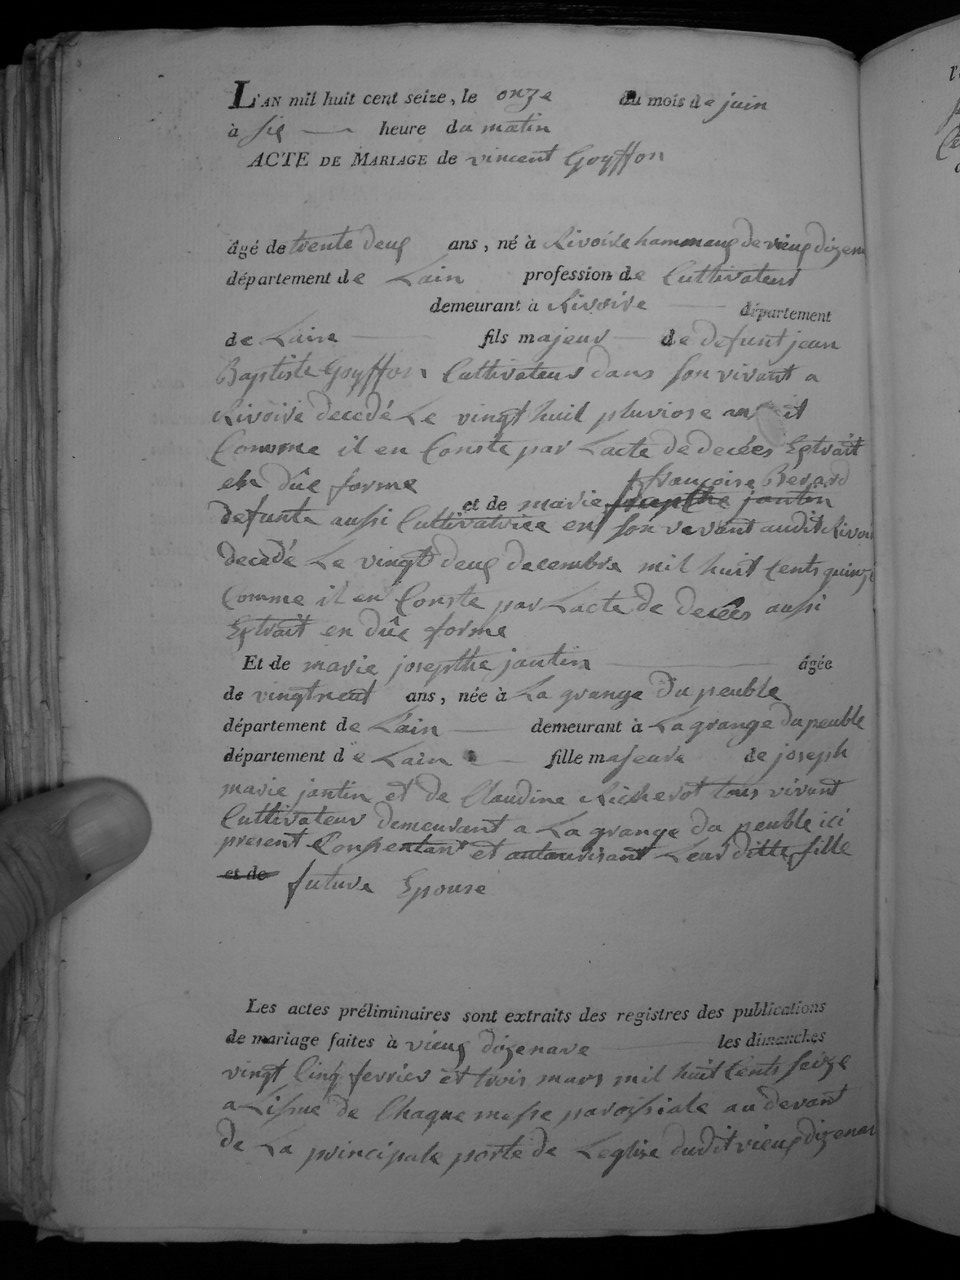 L'AN mil huit cent seize, le onze du mois de juin
à six heure du matin
ACTE DE MARIAGE de vincent Goyffon
âgé de trente deux ans, né à Rivoire hammaux de vieux dizena
département de Lain profession de Cultivateur
demeurant à Rivoire département
de Laine fils majeur de defunt jean
Baptiste Goyffon Cultivateur dans son vivant a
Rivoire decedé Le vingt huit pluviose an
Comme il en Conste par Lacte de decées Extrait
en dûe forme françoise Berard
et de marie josepthe jantin
defunte aussi Cultivatrice en son vevant audit Rivoi
decedé Le vingt deux decembre mil huit Cents quinze
Comme il en Conste par Lacte de decées aussi
Extrait en dûe forme
Et de marie josepthe jantin âgée
de vingtneuf ans, née à La grange du peuble
département de Lain demeurant à La grange du peuble
département de Lain fille majeure de joseph
marie jantin et de Claudine Richerot tous vivant
Cultivateur demeurant a La grange du peuble ici
present Consentant et autaurisant Leur ditte fille
et de future Epouse
Les actes préliminaires sont extraits des registres des publications
de mariage faites à vieux dizenave les dimanches
vingt Cinq fevrier et trois mars mil huit Cents Seize
a Lissue de Chaque messe paroissiale au devant
de La principale porte de Leglise dudit vieux dizenav